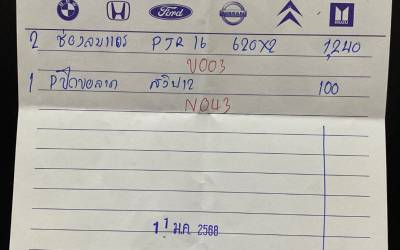 Ford NISSAN ISUZU
2 ช่องลมแอร์ PJR 16 620x2 1,240
V003
1 Pปิดขอลาก สวิป12 100
N043
11 ม.ค. 2568